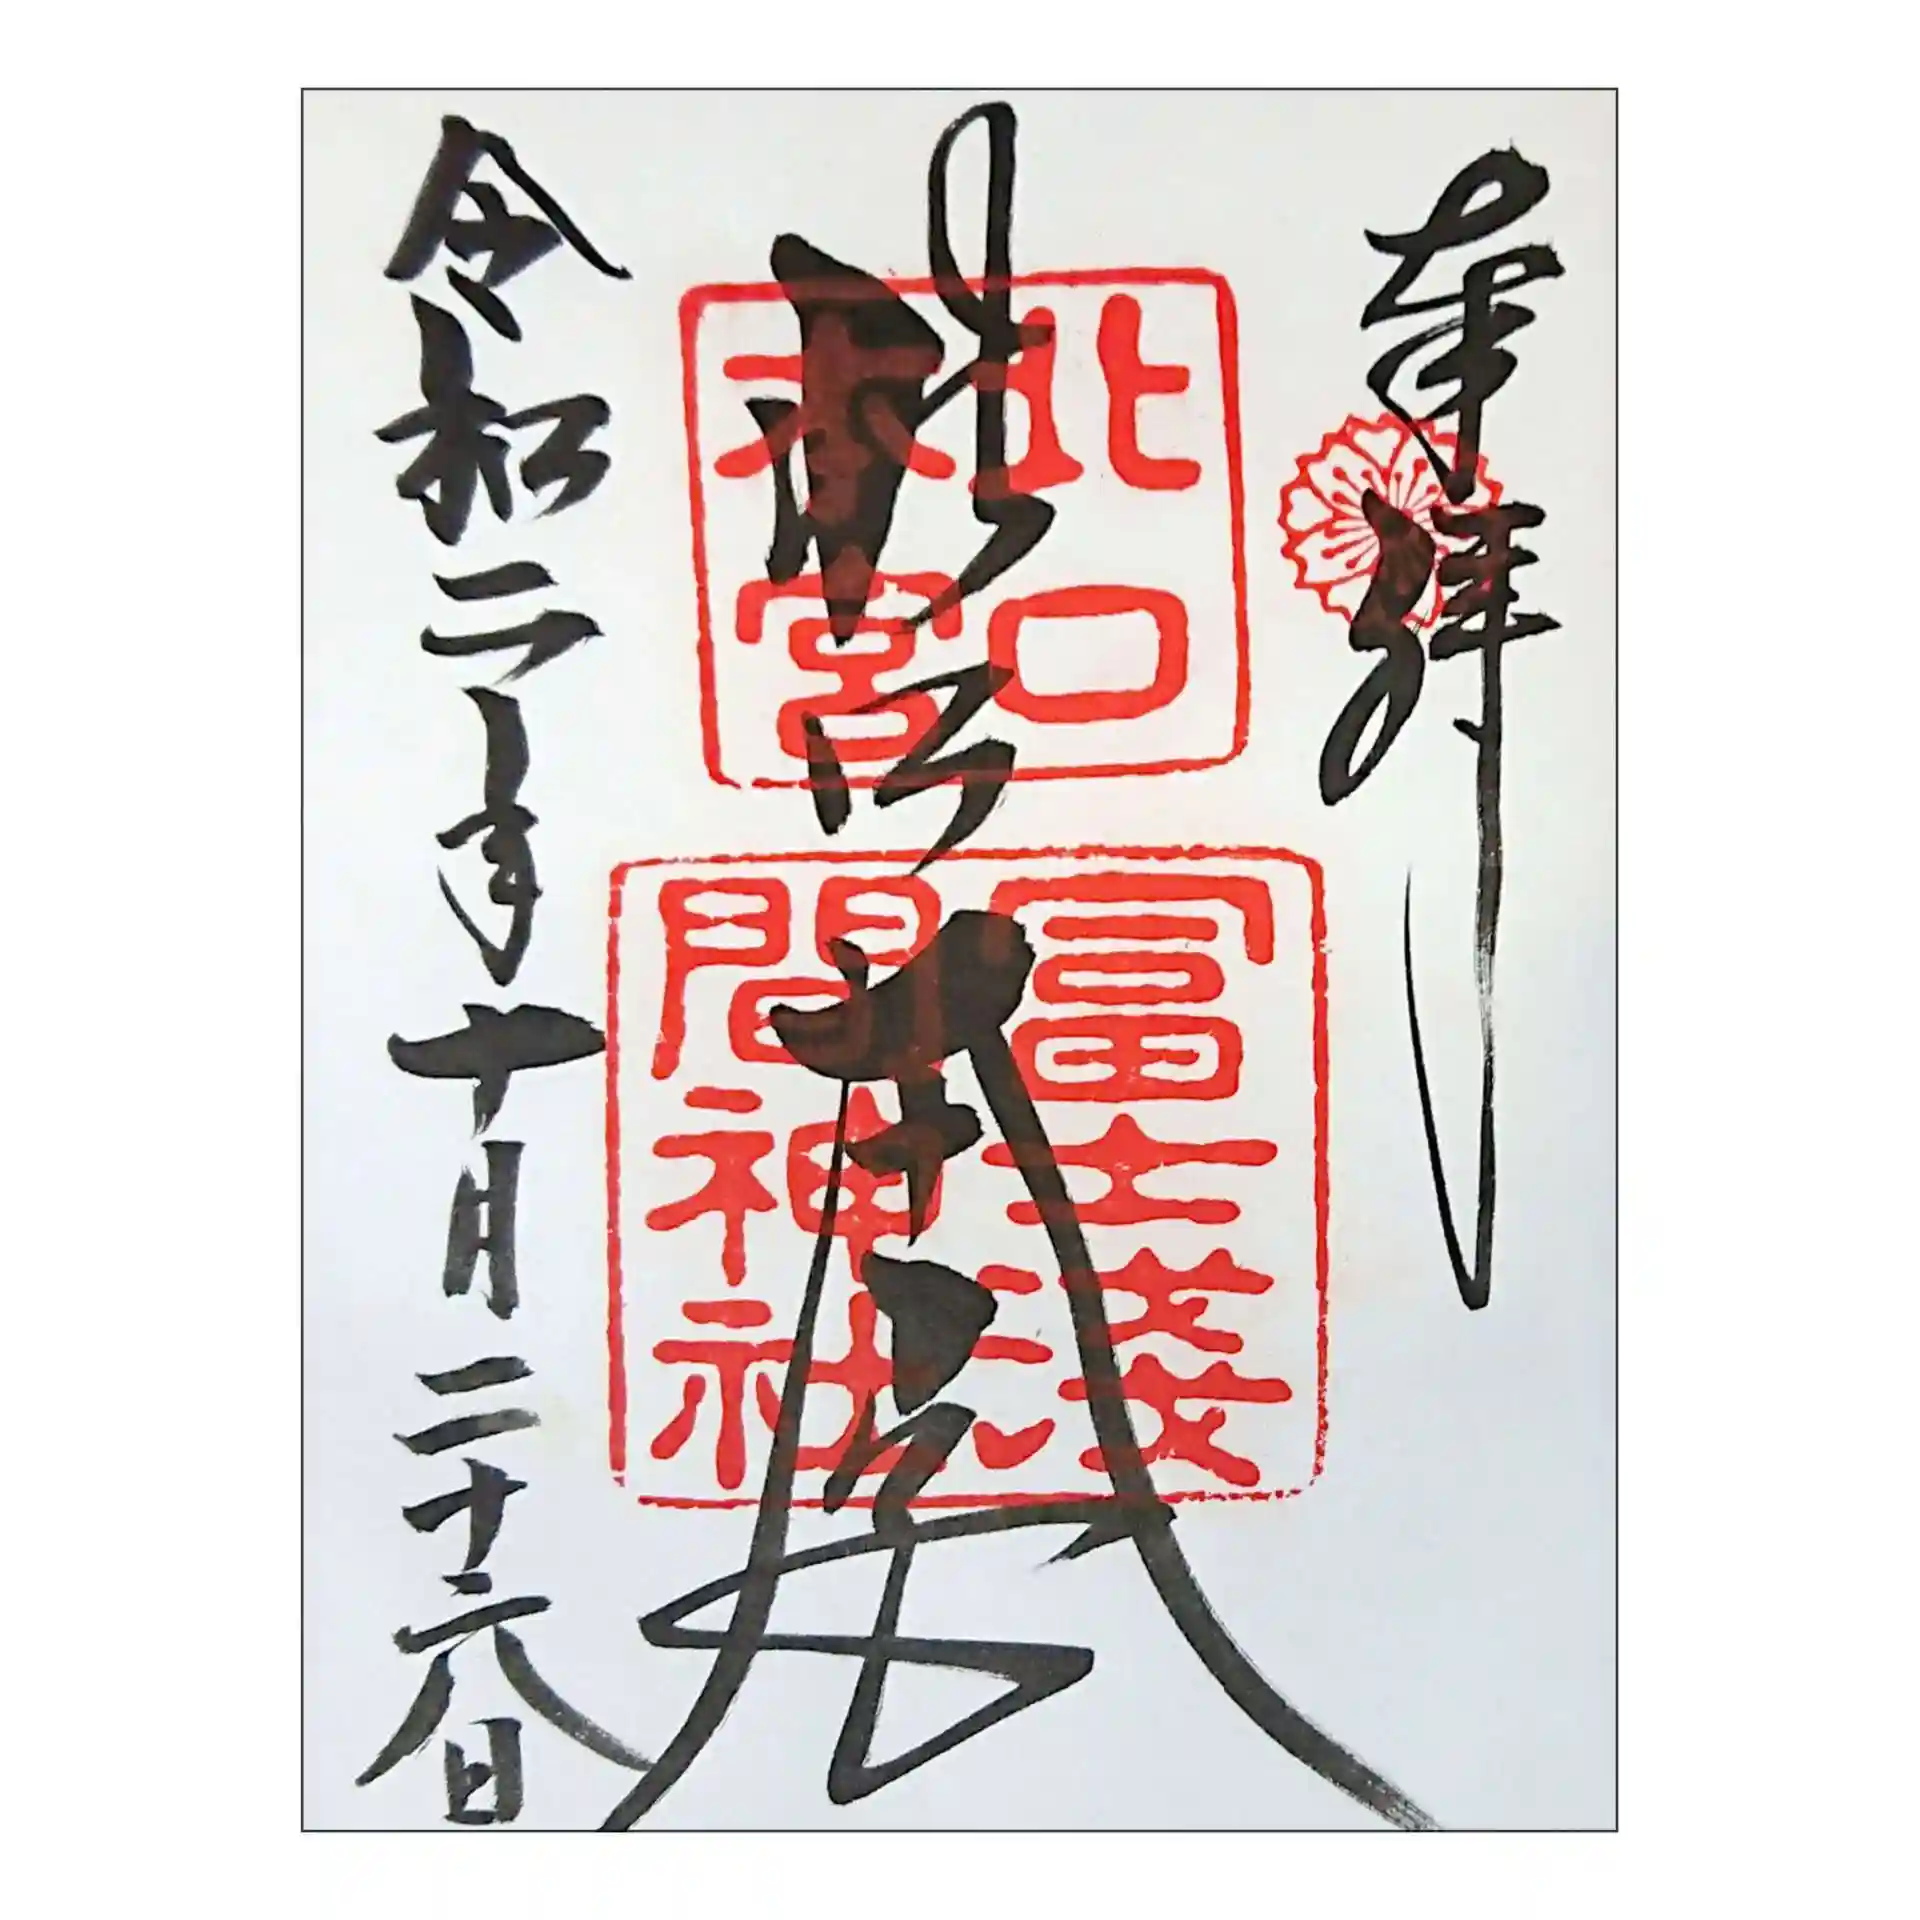 奉拝
北口
本宮
冨士淺
間神社
令和二年十月二十六日